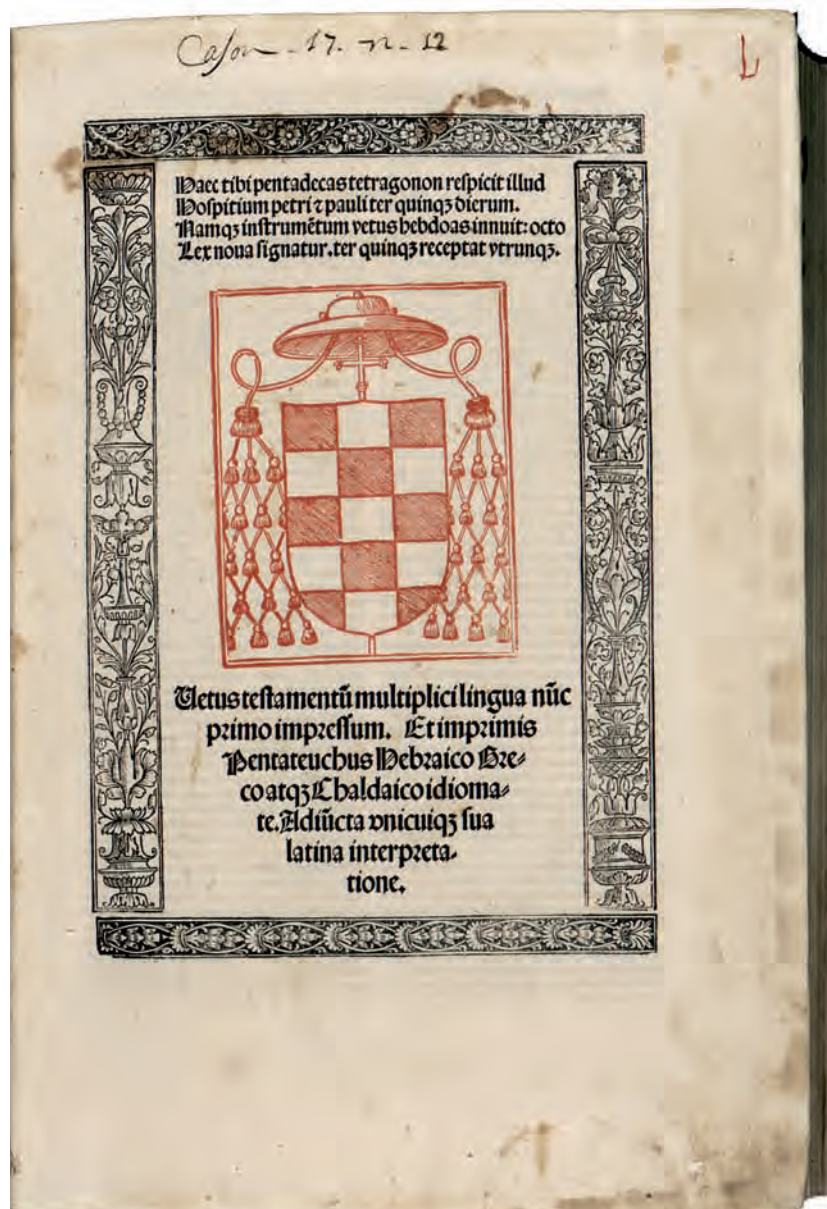 Cajon - 17. n - 12
L
Haec tibi pentadecas tetragonon respicit illud
Hospitium petri ⁊ pauli ter quinqꝫ dierum.
Namqꝫ instrumẽtum vetus hebdoas innuit: octo
Lex noua signatur. ter quinqꝫ receptat vtrunqꝫ.
Uetus testamentũ multiplici lingua nũc
primo impressum. Et imprimis
Pentateuchus Hebraico Gre⸗
co atqꝫ Chaldaico idioma⸗
te. Adiũcta vnicuiqꝫ sua
latina interpreta⸗
tione.